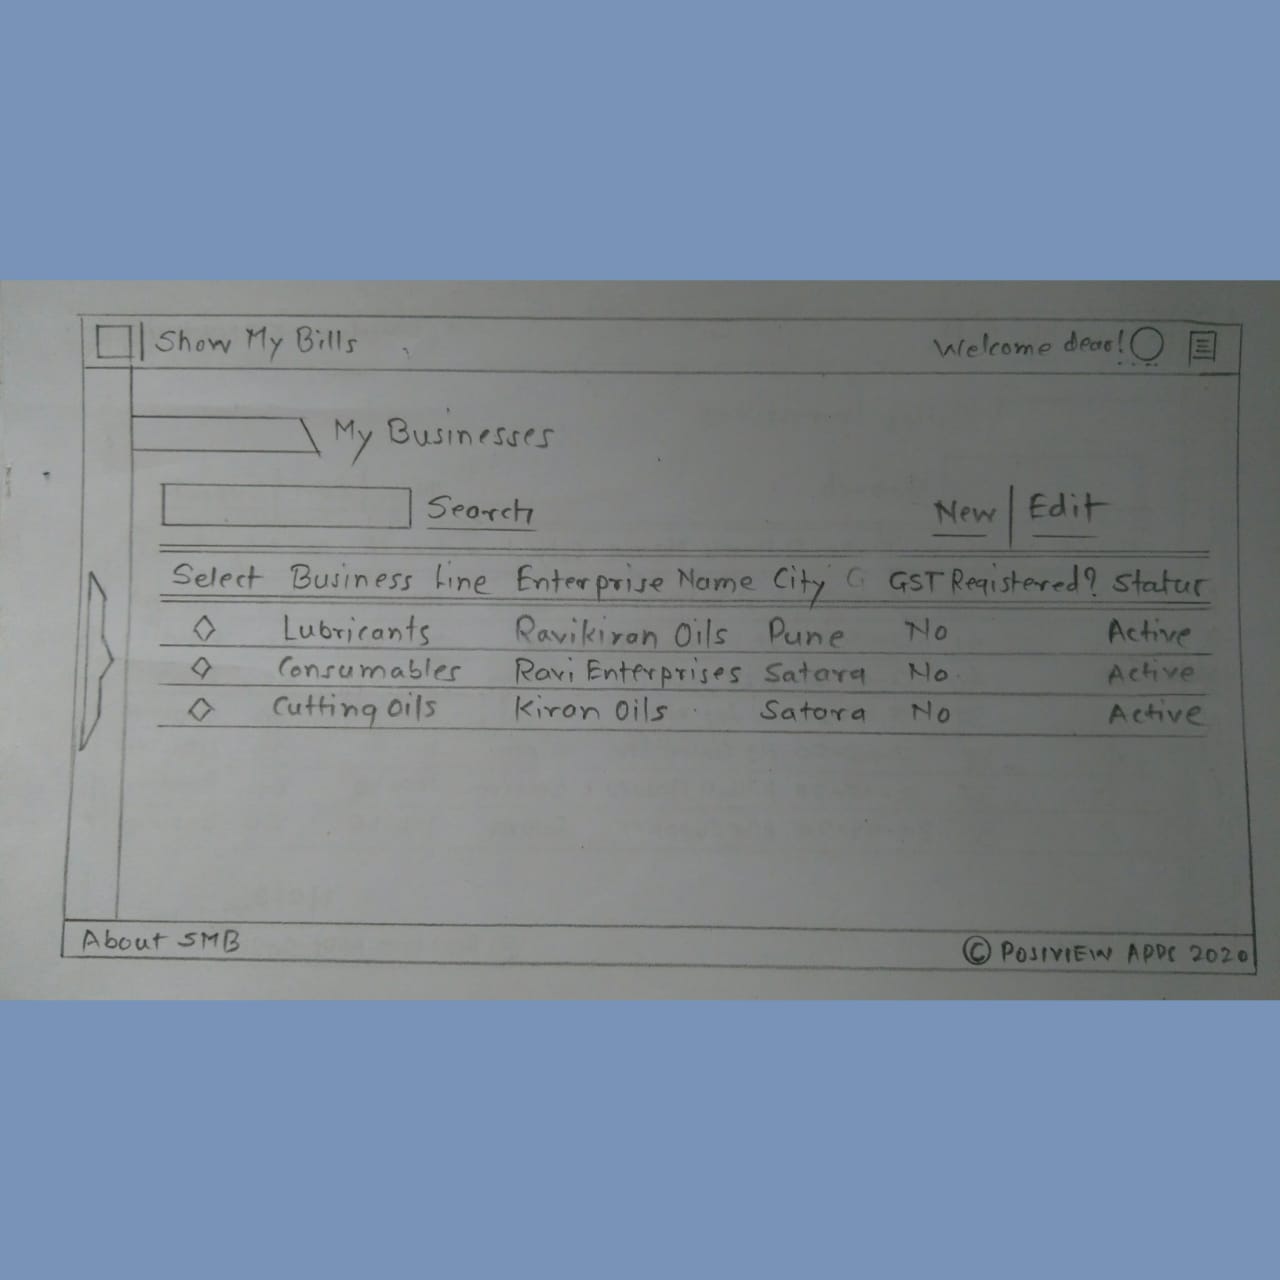 Show My Bills Welcome dear!
My Businesses
Search New Edit
Select Business Line Enterprise Name City GST Registered? Status
Lubricants Ravikiran Oils Pune No Active
Consumables Ravi Enterprises Satara No Active
Cutting Oils Kiran Oils Satara No Active
About SMB © POSIVIEW APPS 2020